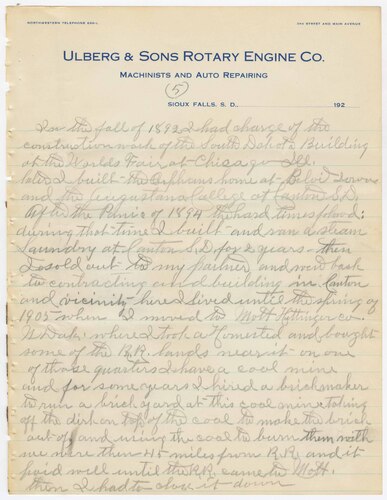 NORTHWESTERN TELEPHONE
2ND STREET AND MAIN AVENUE
ULBERG & SONS ROTARY ENGINE CO.
MACHINISTS AND AUTO REPAIRING
(5)
SIOUX FALLS, S. D., 192
In the fall of 1892 I had charge of the
construction work of the South Dakota Building
at the Worlds Fair at Chicago Ill.
later I built the orphans home at Beloit Iowa
and the Augustana College at Canton S.D.
After the Panic of 1894 the hard times
during that time I built and ran a Steam
Laundry at Canton S.D. for 2 years then
I sold out to my partner and went back
to contracting and building in Canton
and vicinity here I lived until the spring of
1905 when I moved to Mott Hettinger co.
N. Dak. where I took a Homested and bought
some of the R.R. lands near it on one
of those quarters I have a coal mine
and for some years I hired a brickmaker
to run a brick yard at this coal mine taking
off the dirt on top of the coal to make the brick
out of and using the coal to burn them with
we were then 45 miles from R.R. and it
paid well until the R.R. came to Mott.
then I had to close it down